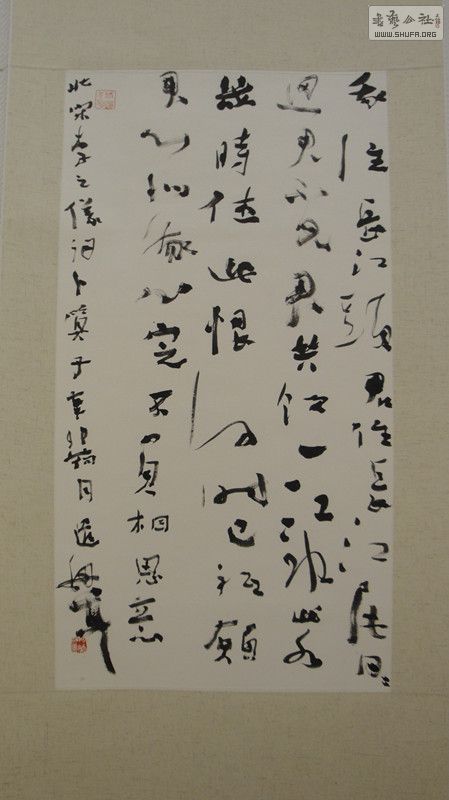 書藝公社
WWW.SHUFA.ORG
我住長江頭君住長江尾日〻
思君不見君共飲一江水此水
幾時休此恨何時已祇願
君心似我心定不負相思意
北宋李之儀詞卜算子辛卯菊月